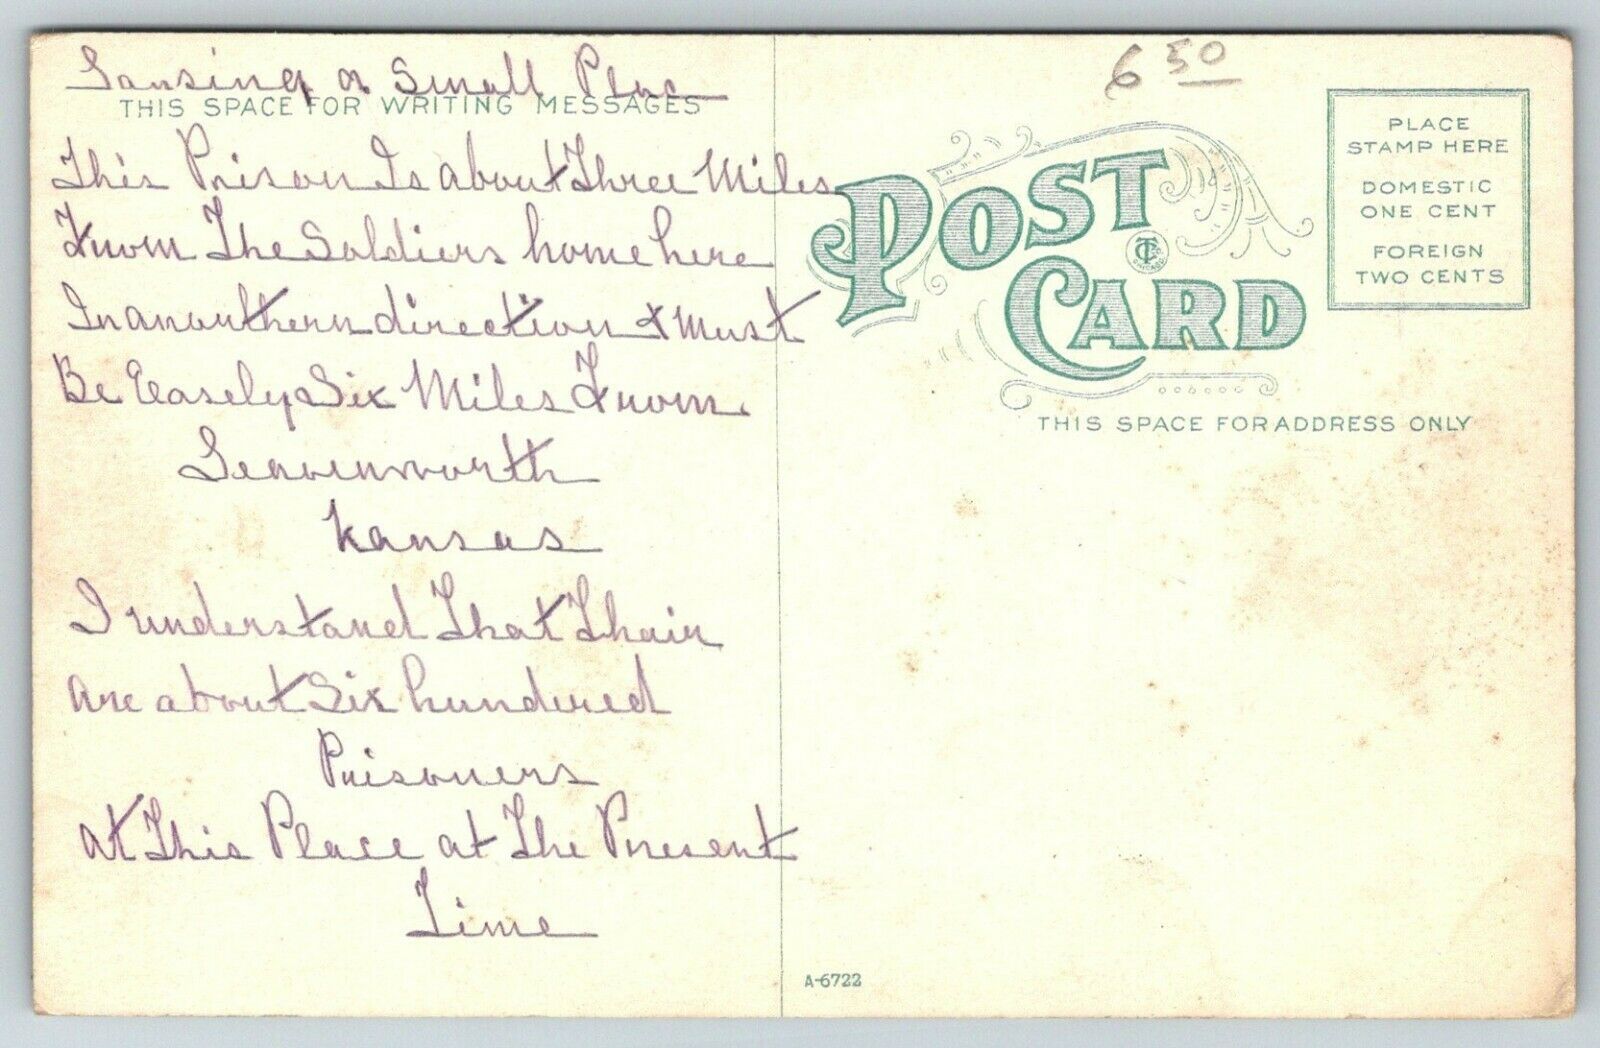 Lansing a Small Place
THIS SPACE FOR WRITING MESSAGES
This Prison Is about Three Miles
From The Soldiers home here
In a northern direction & Must
Be Easely Six Miles From
Leavenworth
Kansas
I understand That Thair
are about Six hundered
Prisoners
at This Place at The Present
Time
6 50
POST CARD
PLACE
STAMP HERE
DOMESTIC
ONE CENT
FOREIGN
TWO CENTS
THIS SPACE FOR ADDRESS ONLY
A-6722